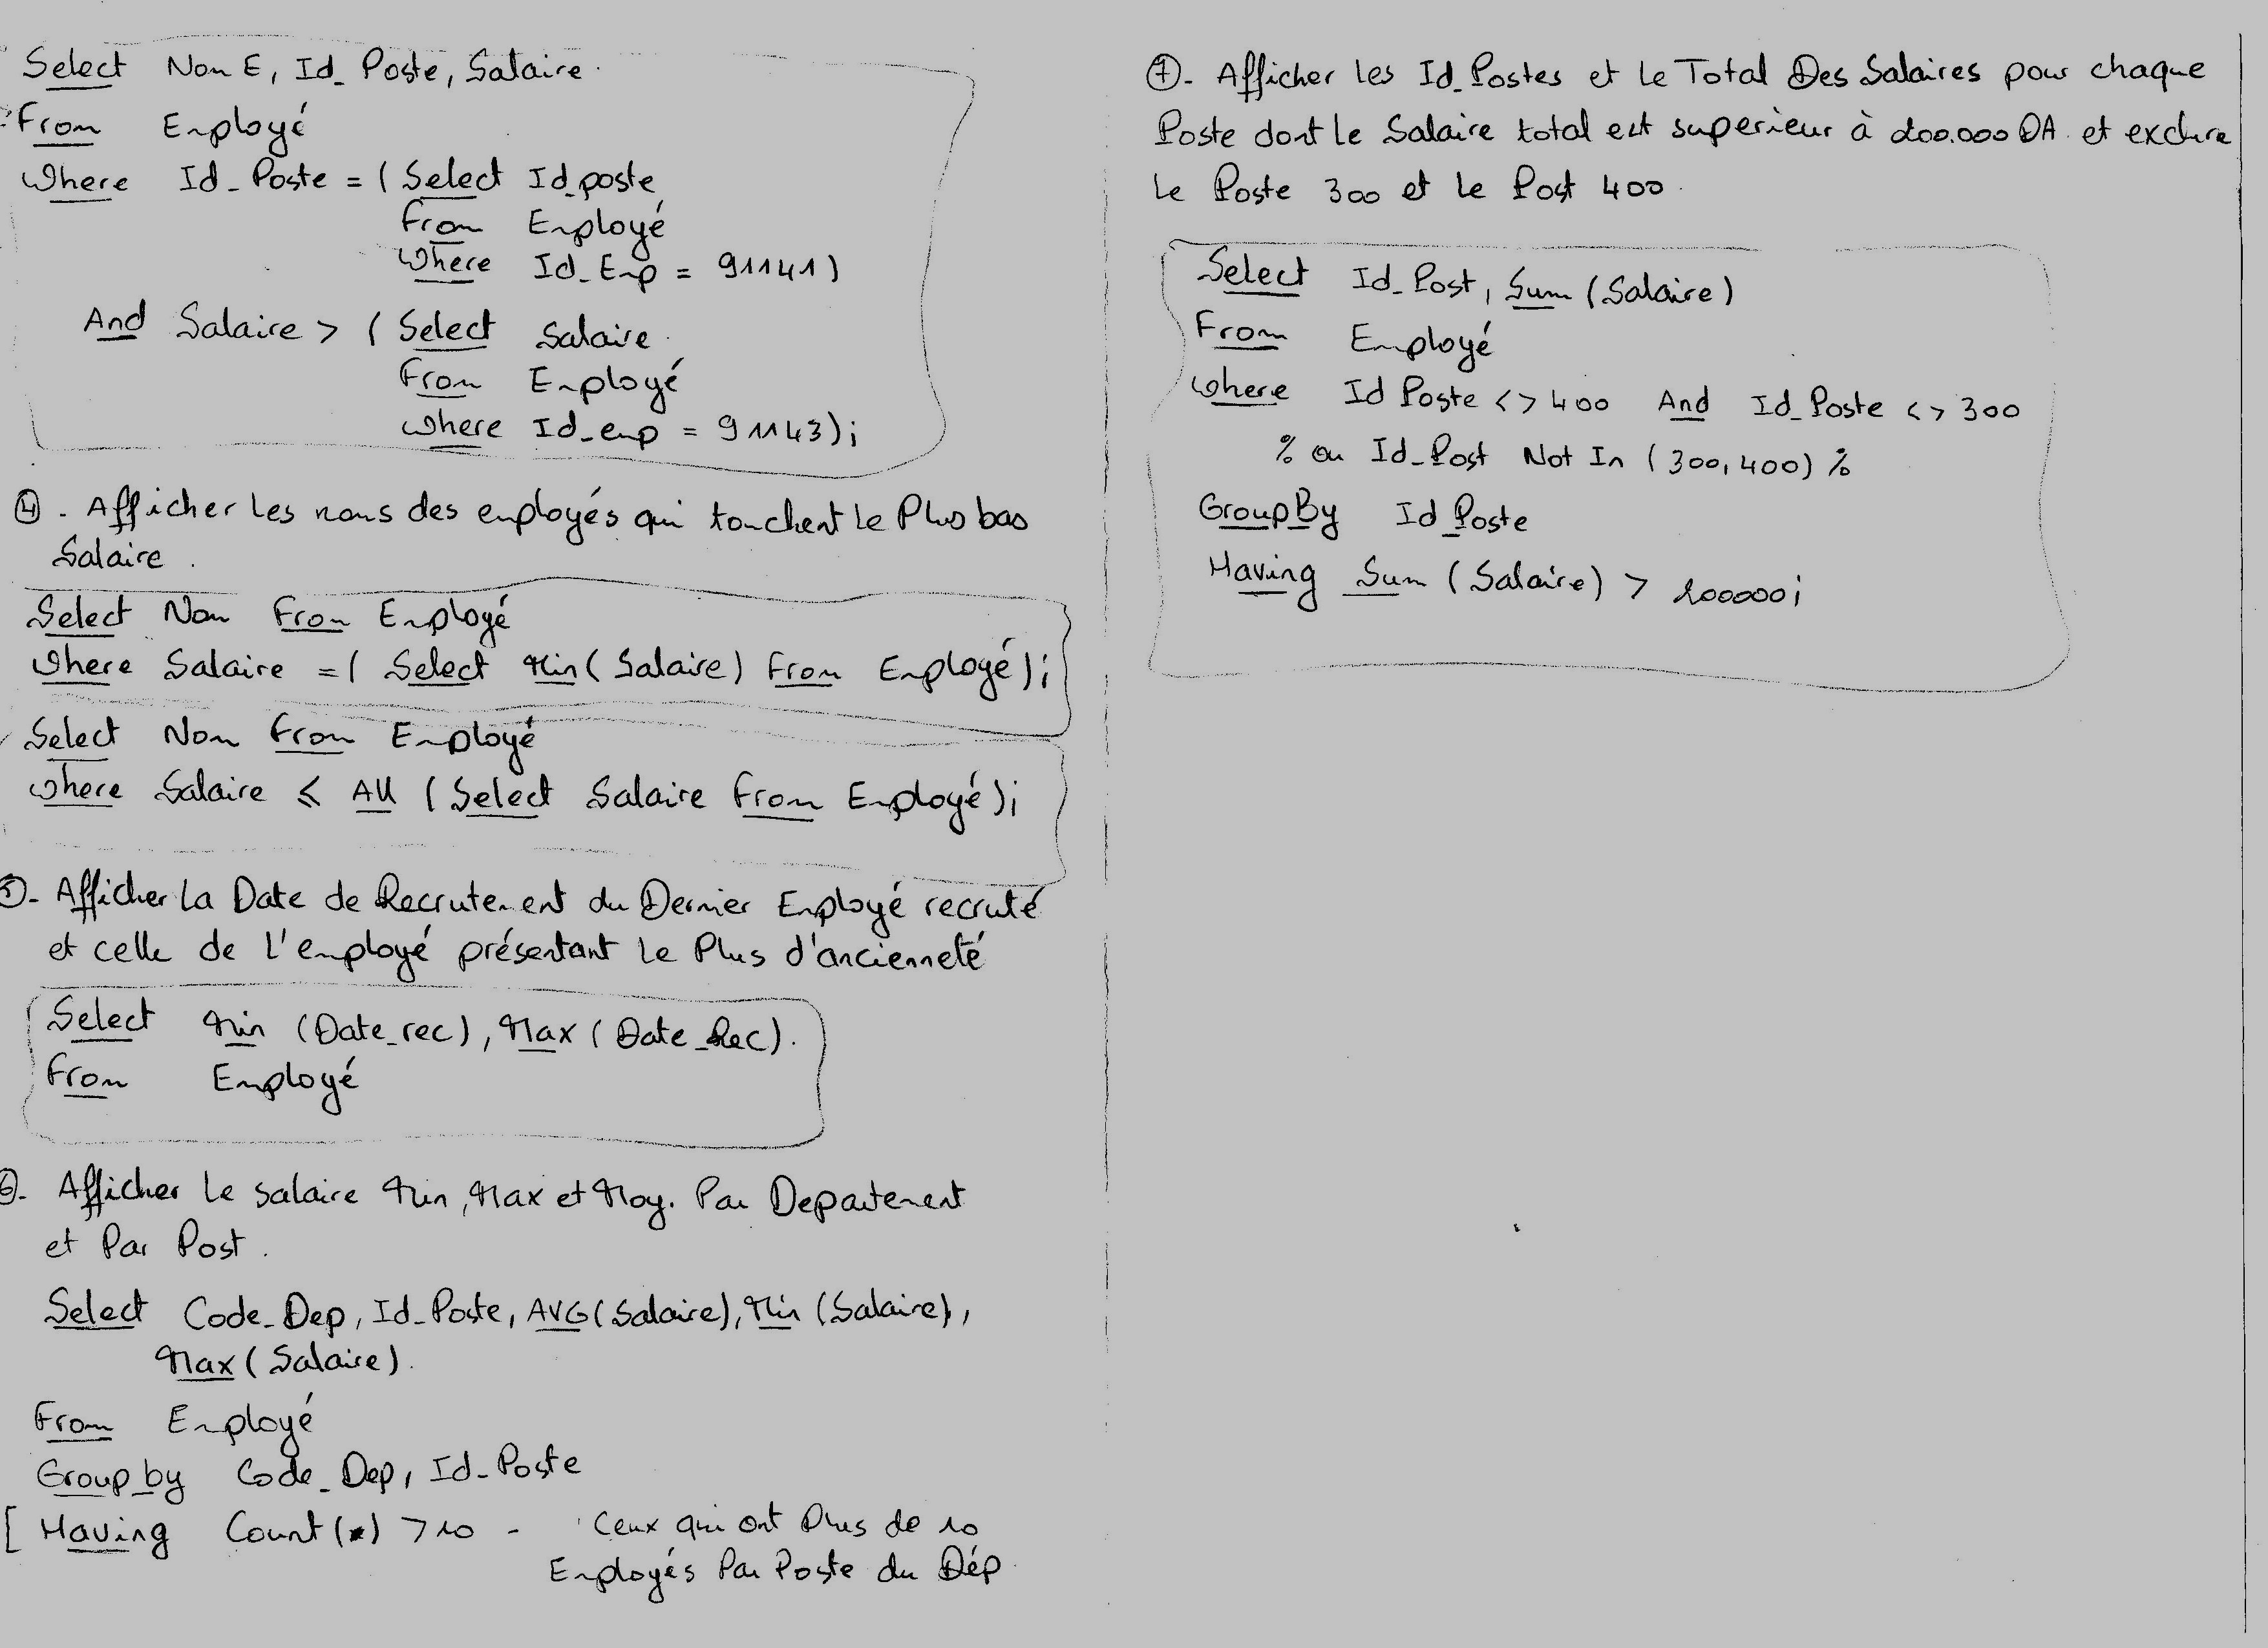 Select Nom E, Id_Poste, Salaire.
From Employé
Where Id_Poste = ( Select Id_poste
From Employé
Where Id_Emp = 91141)
And Salaire > ( Select Salaire.
From Employé
Where Id_emp = 91143);
④. Afficher Les noms des employés qui touchent Le Plus bas
Salaire.
Select Nom From Employé
Where Salaire = ( Select Min( Salaire) From Employé);
Select Nom From Employé
Where Salaire ≤ All ( Select Salaire From Employé);
⑤. Afficher La Date de Recrutement du Dernier Employé recruté
et celle de L'employé présentant Le Plus d'ancienneté
Select Min (Date_rec), Max ( Date_Rec).
From Employé
⑥. Afficher Le salaire Min, Max et Moy. Par Departement
et Par Post.
Select Code_Dep, Id_Poste, AVG(Salaire), Min (Salaire),
Max( Salaire).
From Employé
Group by Code_Dep, Id_Poste
[ Having Count(*) >10 - Ceux qui ont Plus de 10
Employés Par Poste du Dép.
⑦. Afficher Les Id_Postes et Le Total Des Salaires pour chaque
Poste dont Le Salaire total est superieur à 200.000 DA. et exclure
Le Poste 300 et Le Post 400.
Select Id_Post, Sum (Salaire)
From Employé
Where Id Poste <> 400 And Id_Poste <> 300
% ou Id_Post Not In (300,400) %
Group By Id_Poste
Having Sum (Salaire) > 200000;